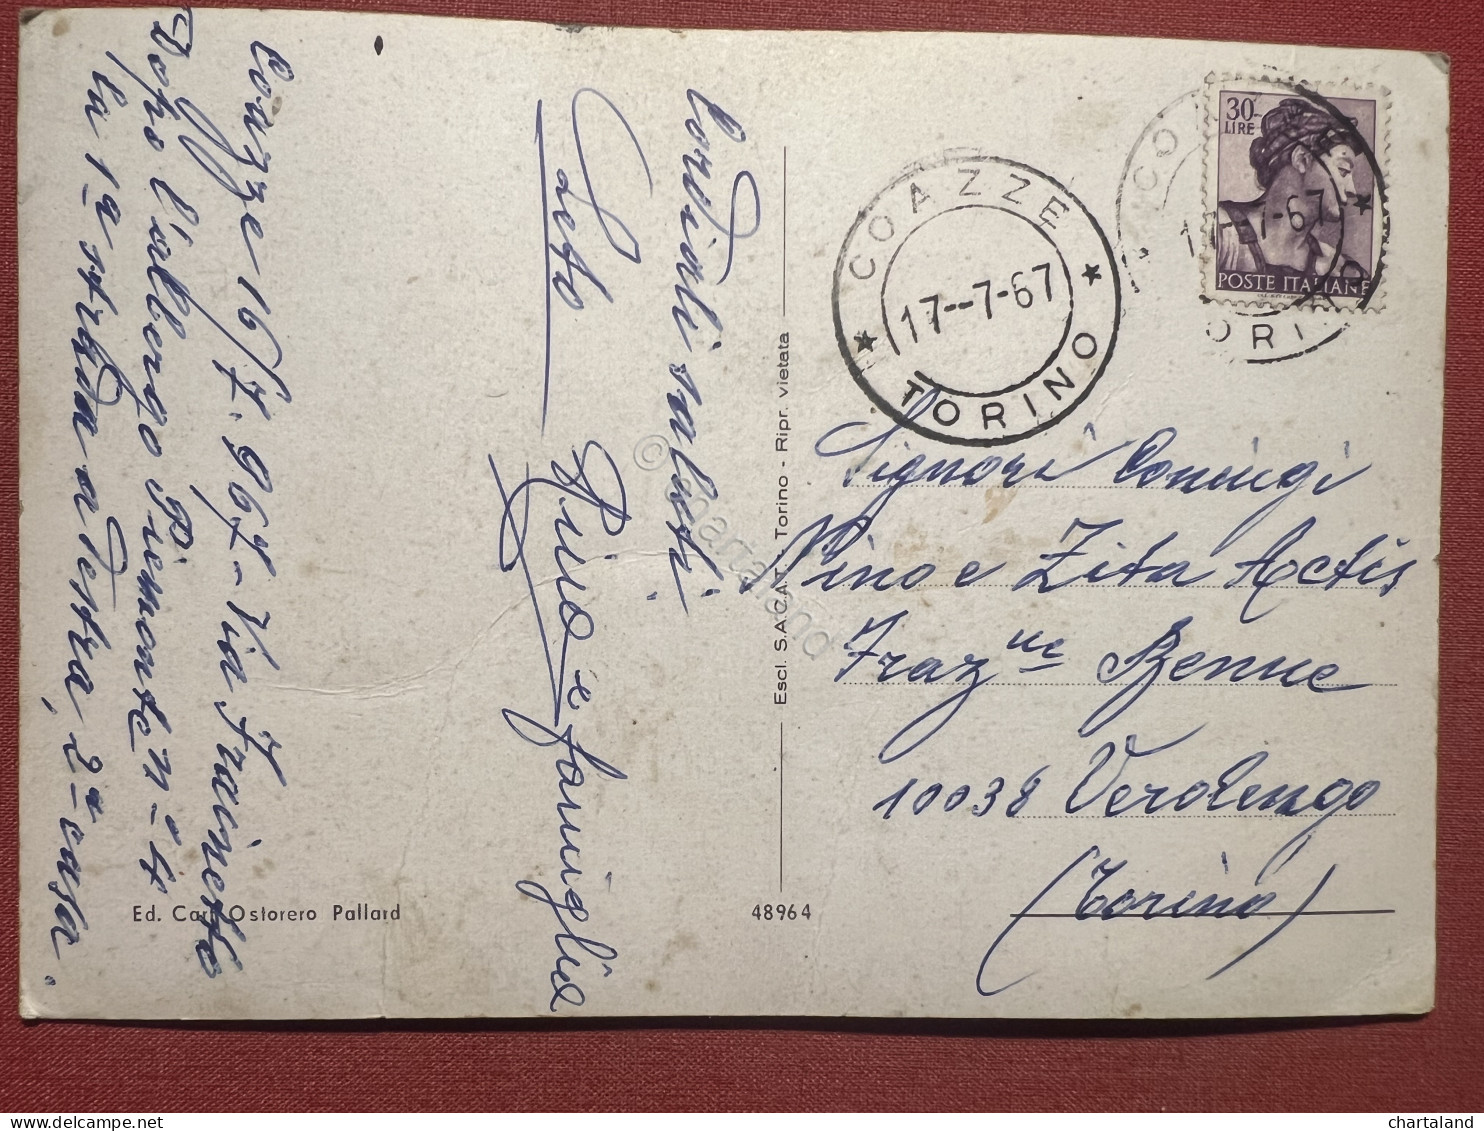 Coazze 16/7.967 - Via Frainetto
Dopo l'albergo Piemonte n° 4
la 1ª strada a destra, 2ª casa.
Cordiali saluti
Pino e famiglia
Ed. Cart. Ostorero Pallard
48964
Escl. S.A.C.A.T. - Torino - Ripr. vietata
© chartaland
COAZZE
17-7-67
TORINO
COAZZE
17-7-67
TORINO
30 LIRE
POSTE ITALIANE
Signori Coniugi
Pino e Zita Actis
Frazne Benne
10038 Verolengo
(Torino)
chartaland